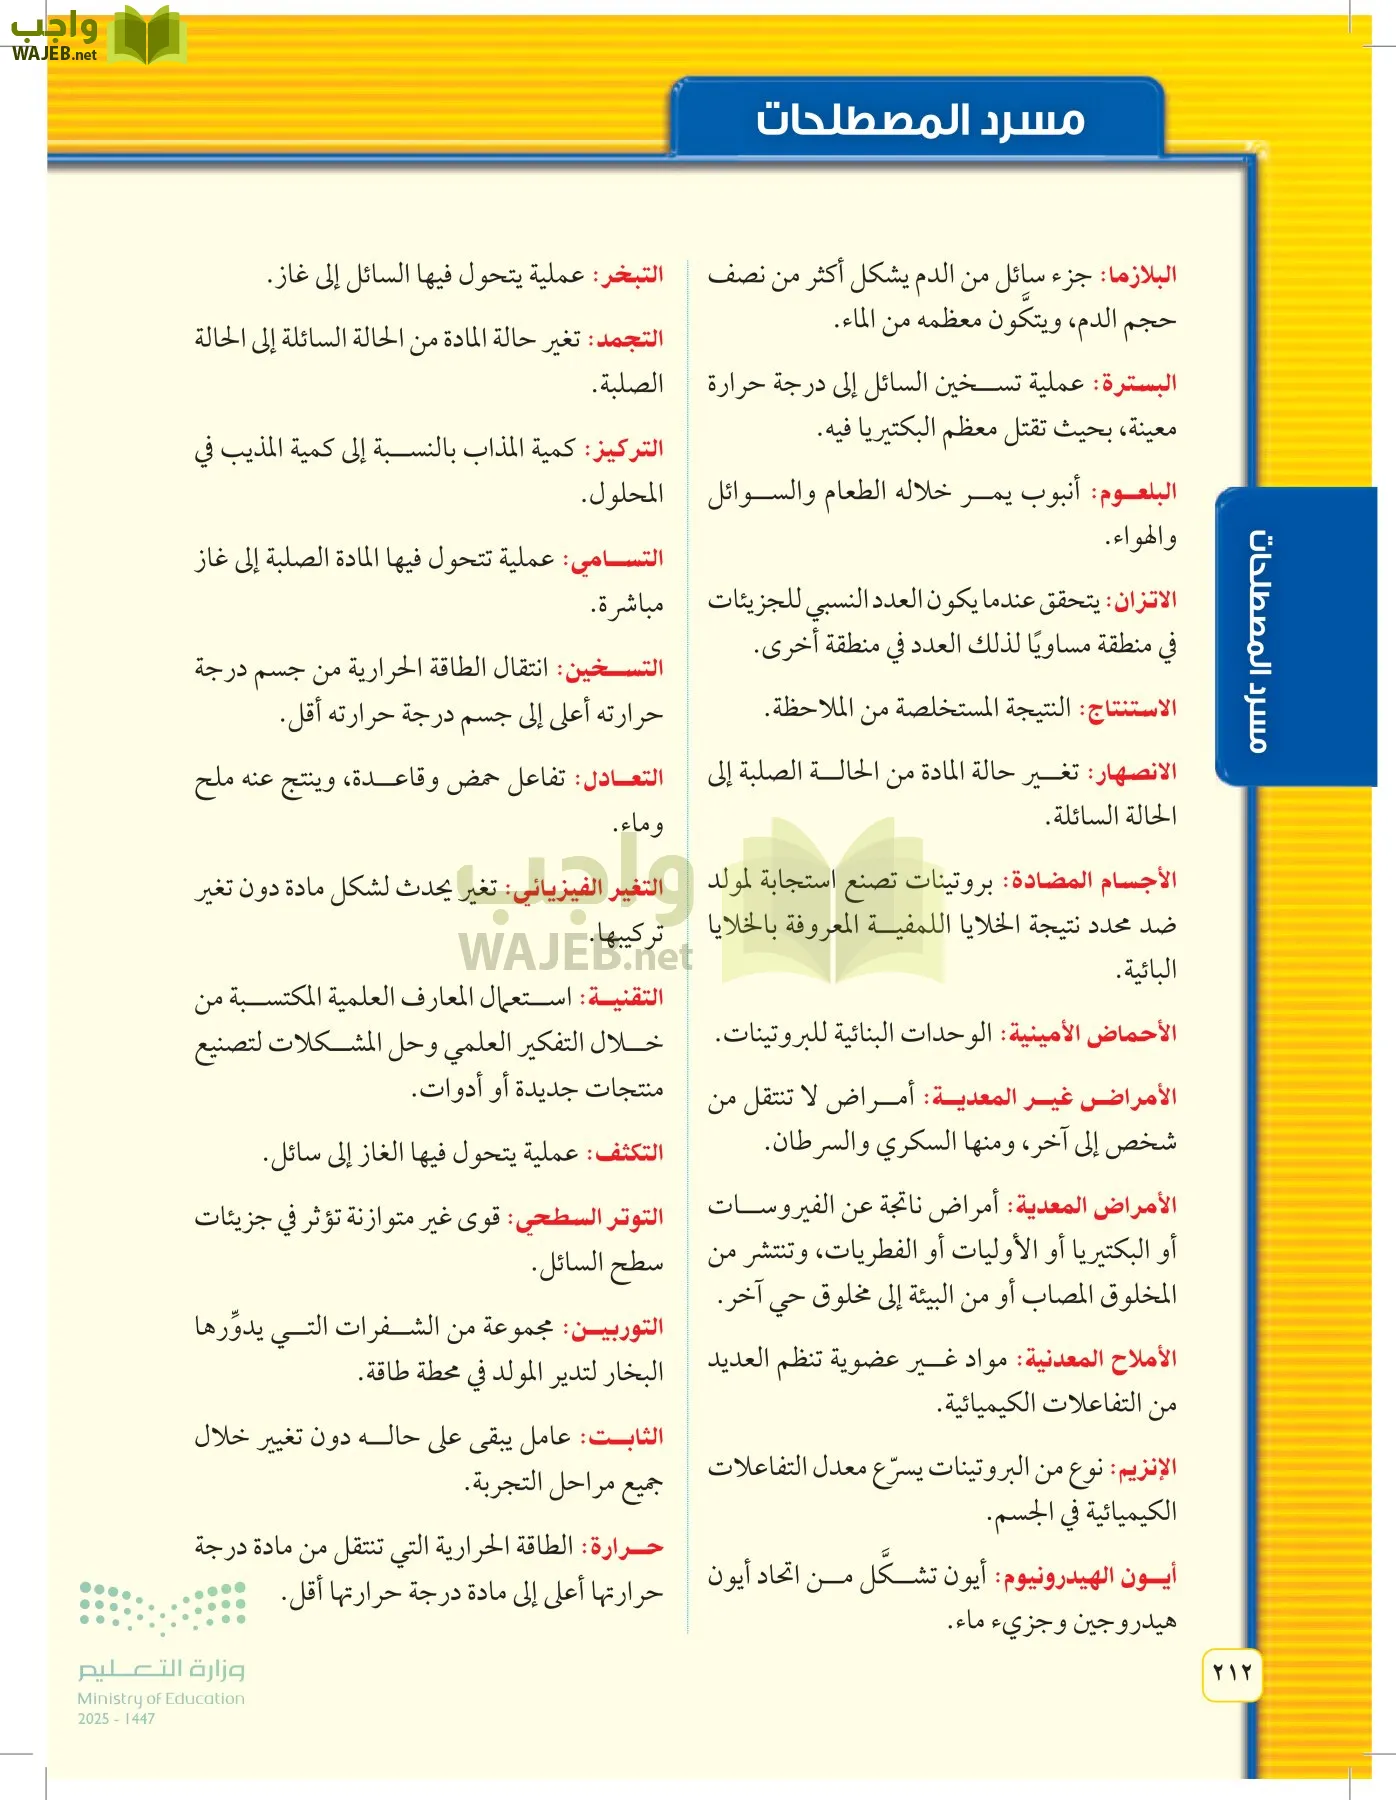 واجب
WAJEB.net
مسرد المصطلحات
البلازما: جزء سائل من الدم يشكل أكثر من نصف
حجم الدم، ويتكَّون معظمه من الماء.
البسترة: عملية تسخين السائل إلى درجة حرارة
معينة، بحيث تقتل معظم البكتيريا فيه.
البلعوم: أنبوب يمر خلاله الطعام والسوائل
والهواء.
الاتزان: يتحقق عندما يكون العدد النسبي للجزيئات
في منطقة مساويًا لذلك العدد في منطقة أخرى.
الاستنتاج: النتيجة المستخلصة من الملاحظة.
الانصهار: تغير حالة المادة من الحالة الصلبة إلى
الحالة السائلة.
الأجسام المضادة: بروتينات تصنع استجابة لمولد
ضد محدد نتيجة الخلايا اللمفية المعروفة بالخلايا
البائية.
الأحماض الأمينية: الوحدات البنائية للبروتينات.
الأمراض غير المعدية: أمراض لا تنتقل من
شخص إلى آخر، ومنها السكري والسرطان.
الأمراض المعدية: أمراض ناتجة عن الفيروسات
أو البكتيريا أو الأوليات أو الفطريات، وتنتشر من
المخلوق المصاب أو من البيئة إلى مخلوق حي آخر.
الأملاح المعدنية: مواد غير عضوية تنظم العديد
من التفاعلات الكيميائية.
الإنزيم: نوع من البروتينات يسرّع معدل التفاعلات
الكيميائية في الجسم.
أيون الهيدرونيوم: أيون تشكَّل من اتحاد أيون
هيدروجين وجزيء ماء.
التبخر: عملية يتحول فيها السائل إلى غاز.
التجمد: تغير حالة المادة من الحالة السائلة إلى الحالة
الصلبة.
التركيز: كمية المذاب بالنسبة إلى كمية المذيب في
المحلول.
التسامي: عملية تتحول فيها المادة الصلبة إلى غاز
مباشرة.
التسخين: انتقال الطاقة الحرارية من جسم درجة
حرارته أعلى إلى جسم درجة حرارته أقل.
التعادل: تفاعل حمض وقاعدة، وينتج عنه ملح
وماء.
التغير الفيزيائي: تغير يحدث لشكل مادة دون تغير
تركيبها.
التقنية: استعمال المعارف العلمية المكتسبة من
خلال التفكير العلمي وحل المشكلات لتصنيع
منتجات جديدة أو أدوات.
التكثف: عملية يتحول فيها الغاز إلى سائل.
التوتر السطحي: قوى غير متوازنة تؤثر في جزيئات
سطح السائل.
التوربين: مجموعة من الشفرات التي يدوِّرها
البخار لتدير المولد في محطة طاقة.
الثابت: عامل يبقى على حاله دون تغيير خلال
جميع مراحل التجربة.
حرارة: الطاقة الحرارية التي تنتقل من مادة درجة
حرارتها أعلى إلى مادة درجة حرارتها أقل.
مسرد المصطلحات
واجب
WAJEB.net
وزارة التعليم
Ministry of Education
2025 - 1447
٢١٢